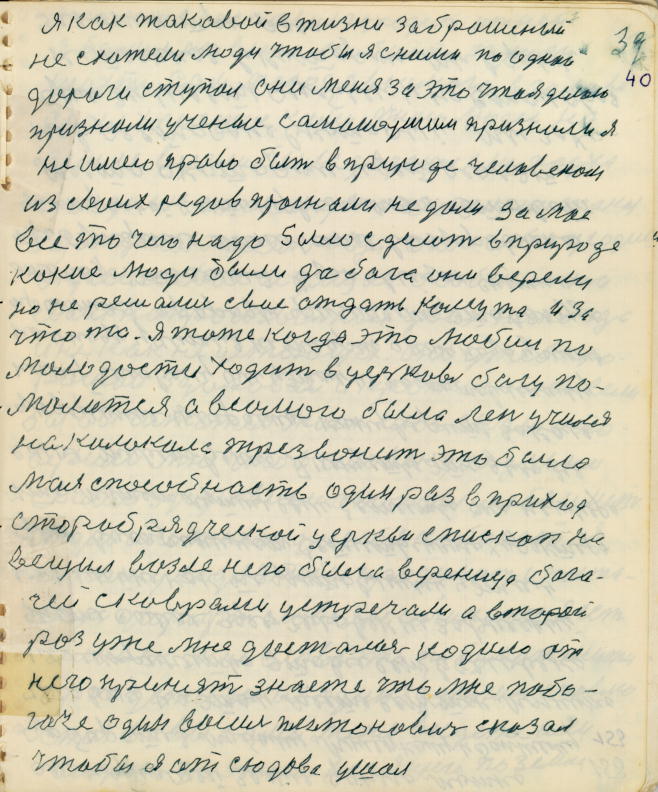 39
40
я как таковой в жизни заброшеный
не схотели люди чтобы я сними по одной
дороги ступал они меня за это что я делаю
признали ученые самошедшим признали я
не имею право быт в природе человеком
из своих редов прогнали не дали за мое
все то чего надо было сделат в природе
какие люди были да бога они верели
но не решалис свае отдать кому та и за
что то. Я тоже когда это любил по
молодости ходит в церковь богу по-
молится а в сомого была леп училса
на колокола трезвонит это была
моя способность один раз в приход
старобрядческой церкви епископ на
вещил возле него была веренице бога-
чей сковрами устречали а второй
роз уже мне досталося кодило от
него принят знаете что мне побо-
гаче один васил платонович сказал
чтобы я от сюдова ушол